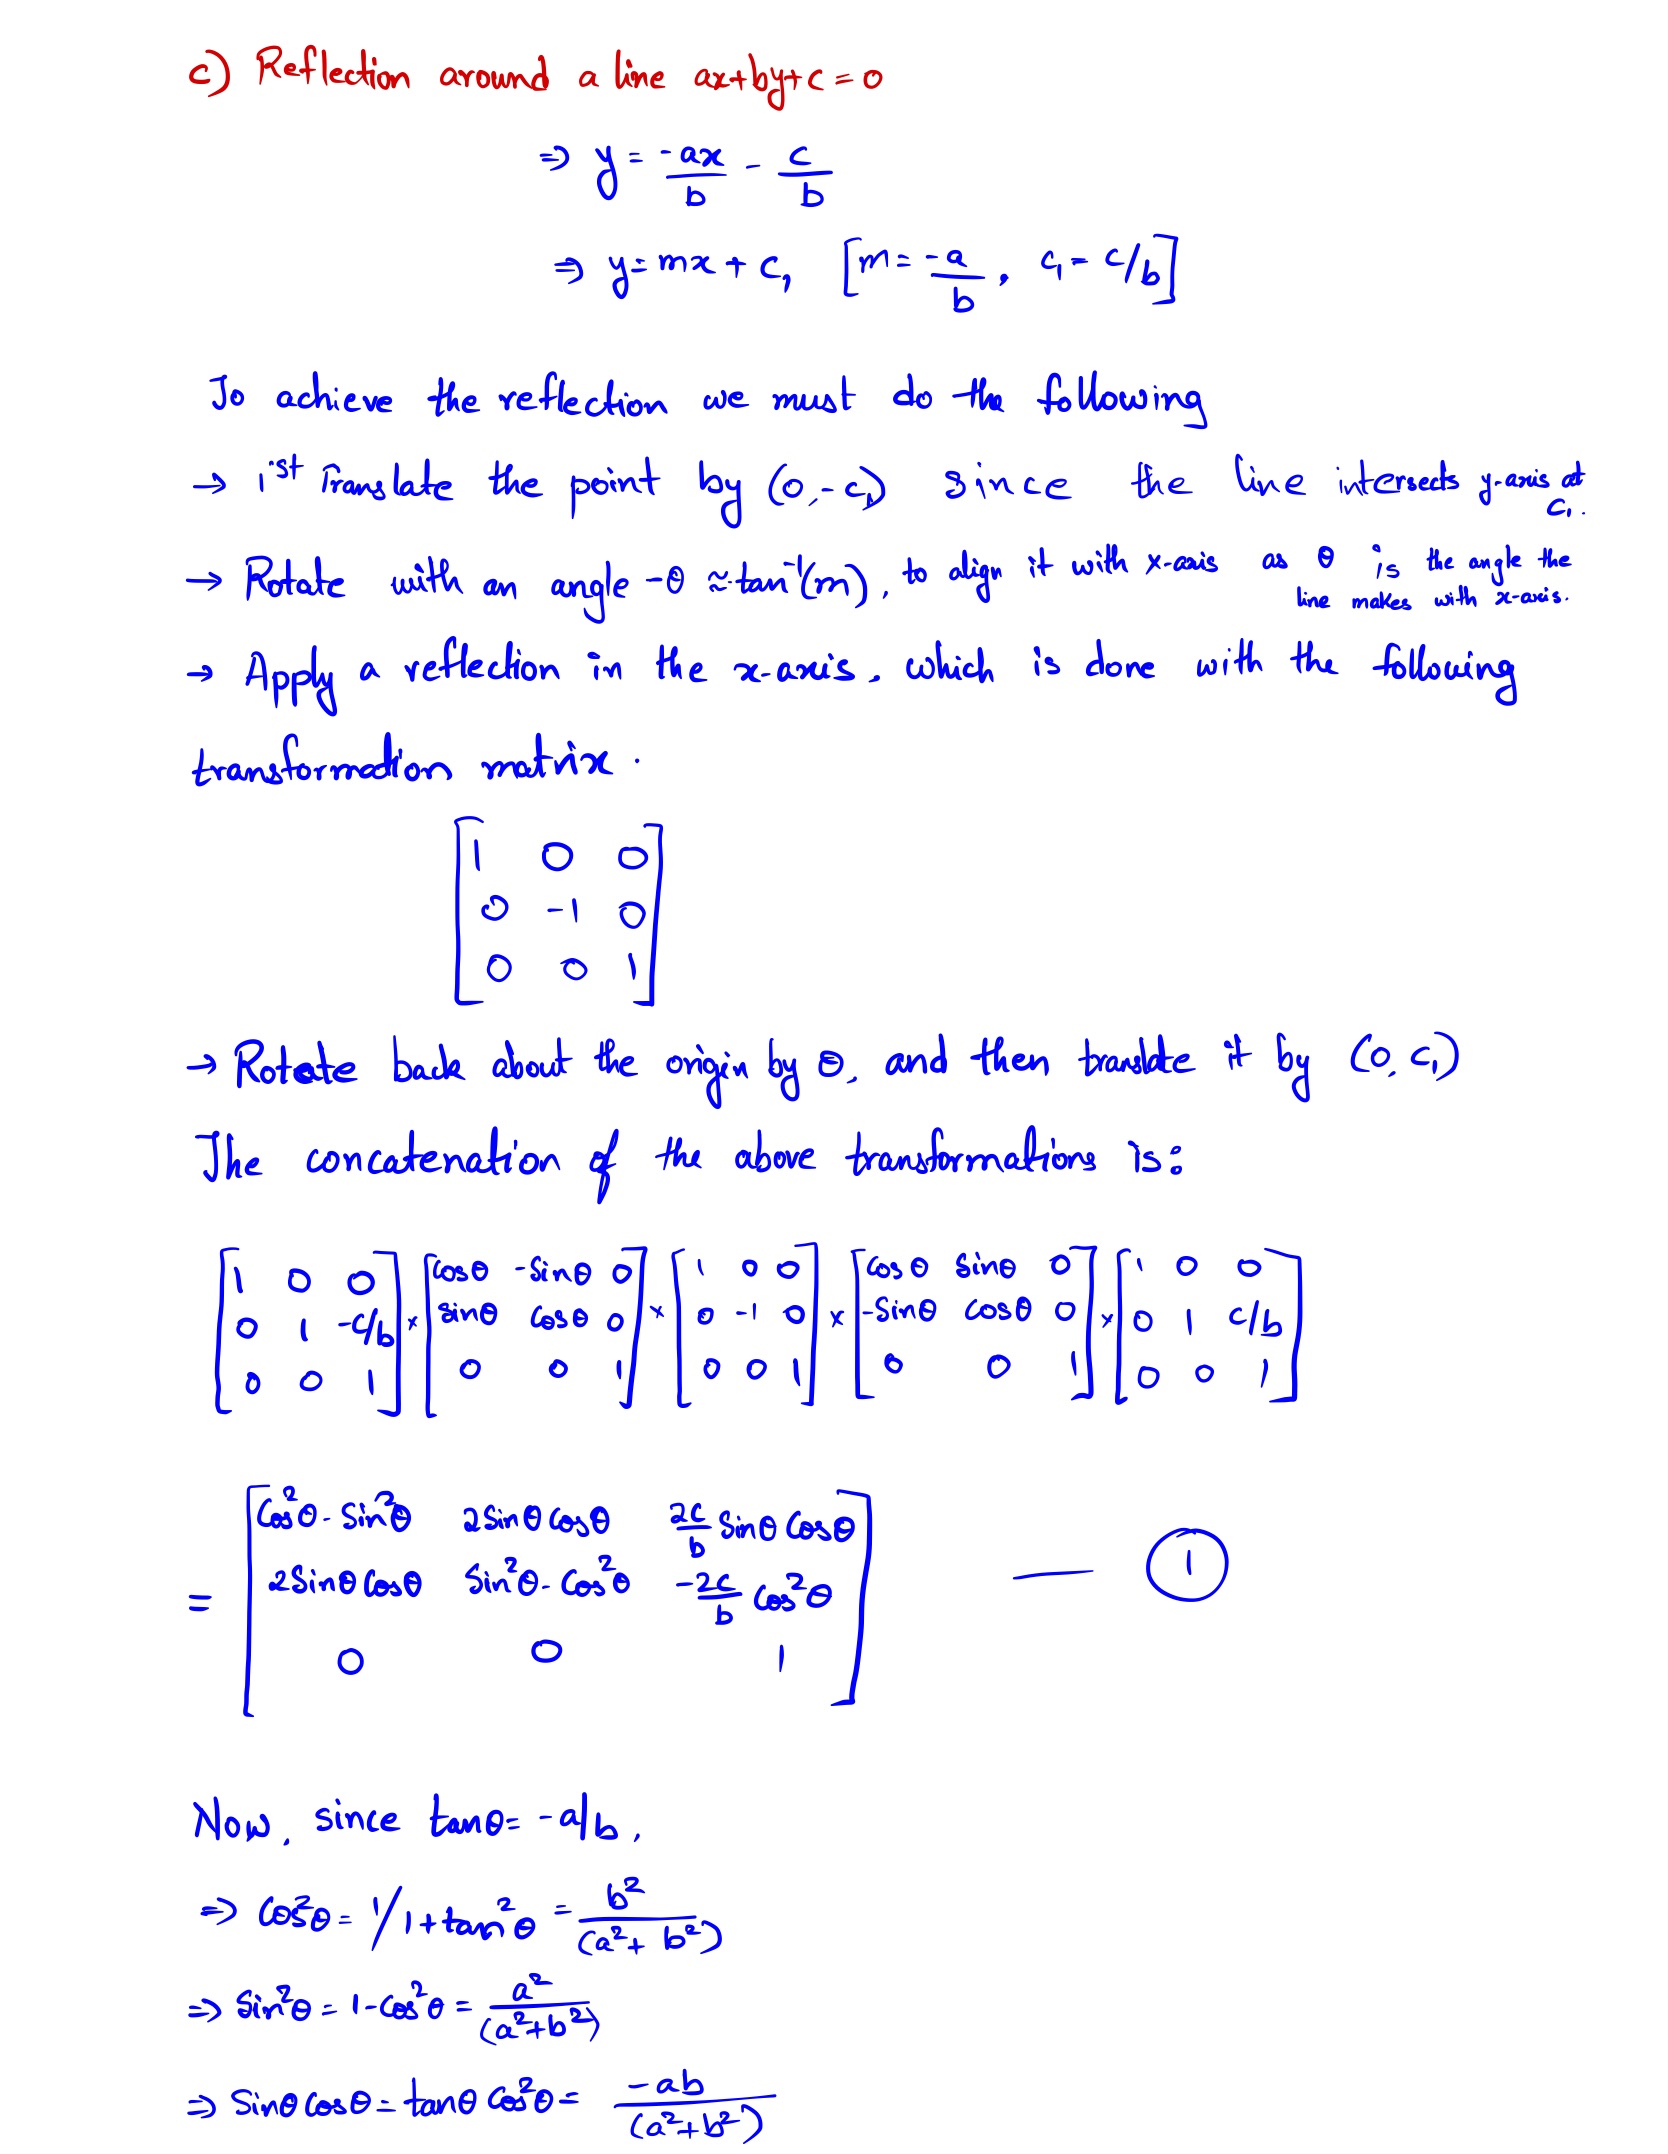 c) Reflection around a line ax+by+c=0
⇒ y = -ax/b - c/b
⇒ y = mx + c₁ [m = -a/b, c₁ = c/b]
To achieve the reflection we must do the following
→ 1st Translate the point by (0, -c₁) since the line intersects y-axis at c₁.
→ Rotate with an angle -θ ≈ tan⁻¹(m), to align it with x-axis as θ is the angle the line makes with x-axis.
→ Apply a reflection in the x-axis, which is done with the following
transformation matrix.
[1 0 0
0 -1 0
0 0 1]
→ Rotate back about the origin by θ, and then translate it by (0, c₁)
The concatenation of the above transformations is:
[1 0 0; 0 1 -c/b; 0 0 1] × [cosθ -sinθ 0; sinθ cosθ 0; 0 0 1] × [1 0 0; 0 -1 0; 0 0 1] × [cosθ sinθ 0; -sinθ cosθ 0; 0 0 1] × [1 0 0; 0 1 c/b; 0 0 1]
= [cos²θ - sin²θ 2sinθcosθ 2c/b sinθcosθ
2sinθcosθ sin²θ - cos²θ -2c/b cos²θ
0 0 1] — ①
Now, since tanθ = -a/b,
⇒ cos²θ = 1/1+tan²θ = b²/(a²+b²)
⇒ sin²θ = 1-cos²θ = a²/(a²+b²)
⇒ sinθcosθ = tanθcos²θ = -ab/(a²+b²)